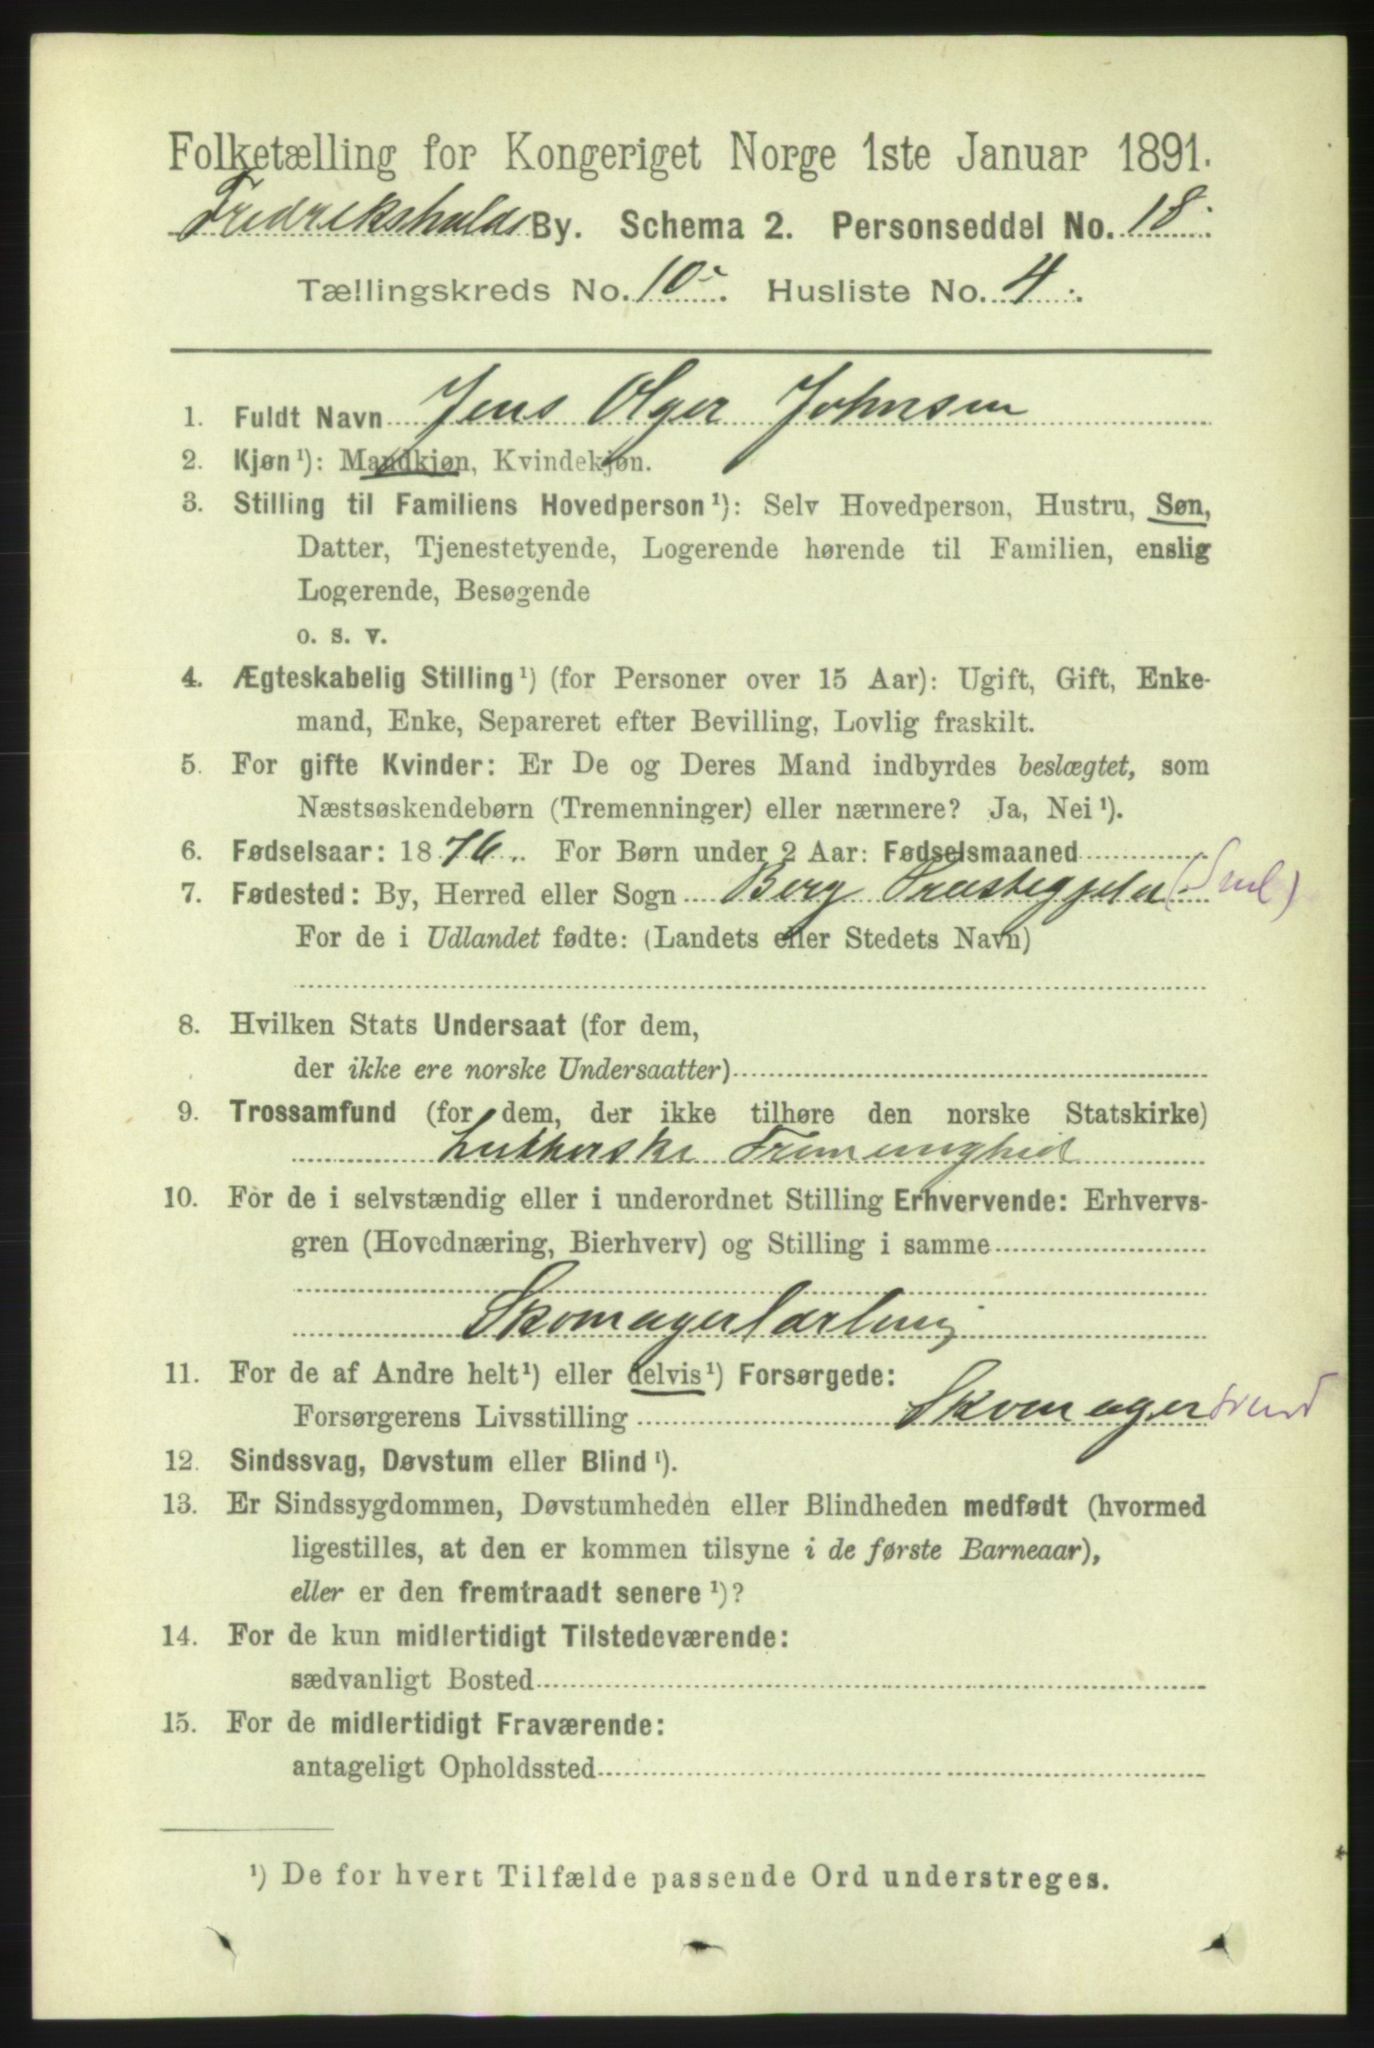 Folketælling for Kongeriget Norge 1ste Januar 1891.
Fredrikshalds By. Schema 2. Personseddel No. 18.
Tællingskreds No. 10. Husliste No. 4.
1. Fuldt Navn Jens Olger Johnsen
2. Kjøn¹): Mandkjøn, Kvindekjøn.
3. Stilling til Familiens Hovedperson¹): Selv Hovedperson, Hustru, Søn,
Datter, Tjenestetyende, Logerende hørende til Familien, enslig
Logerende, Besøgende
o. s. v.
4. Ægteskabelig Stilling¹) (for Personer over 15 Aar): Ugift, Gift, Enke-
mand, Enke, Separeret efter Bevilling, Lovlig fraskilt.
5. For gifte Kvinder: Er De og Deres Mand indbyrdes beslægtet, som
Næstsøskendebørn (Tremenninger) eller nærmere? Ja, Nei¹).
6. Fødselsaar: 1876. For Børn under 2 Aar: Fødselsmaaned
7. Fødested: By, Herred eller Sogn Berg Præstegjeld (Sml)
For de i Udlandet fødte: (Landets eller Stedets Navn)
8. Hvilken Stats Undersaat (for dem,
der ikke ere norske Undersaatter)
9. Trossamfund (for dem, der ikke tilhøre den norske Statskirke)
Lutherske Frimenighed
10. For de i selvstændig eller i underordnet Stilling Erhvervende: Erhvervs-
gren (Hovednæring, Bierhverv) og Stilling i samme
Skomagerlærling
11. For de af Andre helt¹) eller delvis¹) Forsørgede:
Forsørgerens Livsstilling Skomagersvend
12. Sindssvag, Døvstum eller Blind¹).
13. Er Sindssygdommen, Døvstumheden eller Blindheden medfødt (hvormed
ligestilles, at den er kommen tilsyne i de første Barneaar),
eller er den fremtraadt senere¹)?
14. For de kun midlertidigt Tilstedeværende:
sædvanligt Bosted
15. For de midlertidigt Fraværende:
antageligt Opholdssted
¹) De for hvert Tilfælde passende Ord understreges.